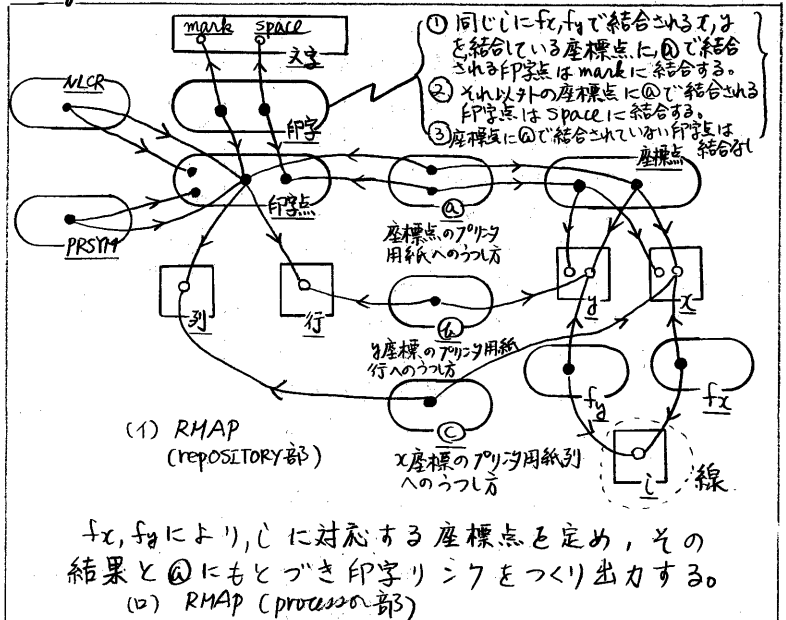 mark space
文字
① 同じiにfx,fyで結合されるx,y
を結合している座標点に,ⓐで結合
される印字点はmarkに結合する。
② それ以外の座標点にⓐで結合される
印字点はspaceに結合する。
③ 座標点にⓐで結合されていない印字点は
結合なし
NLCR
印字
座標点
印字点
ⓐ
PRSYM
座標点のプリンタ
用紙へのうつし方
列
行
y
x
ⓑ
y座標のプリンタ用紙
行へのうつし方
fy
fx
ⓒ
(イ) RMAP
(repOSITORY部)
x座標のプリンタ用紙列
へのうつし方
i
線
fx,fyにより,iに対応する座標点を定め,その
結果とⓐにもとづき印字リンクをつくり出力する。
(ロ) RMAP (processor部)